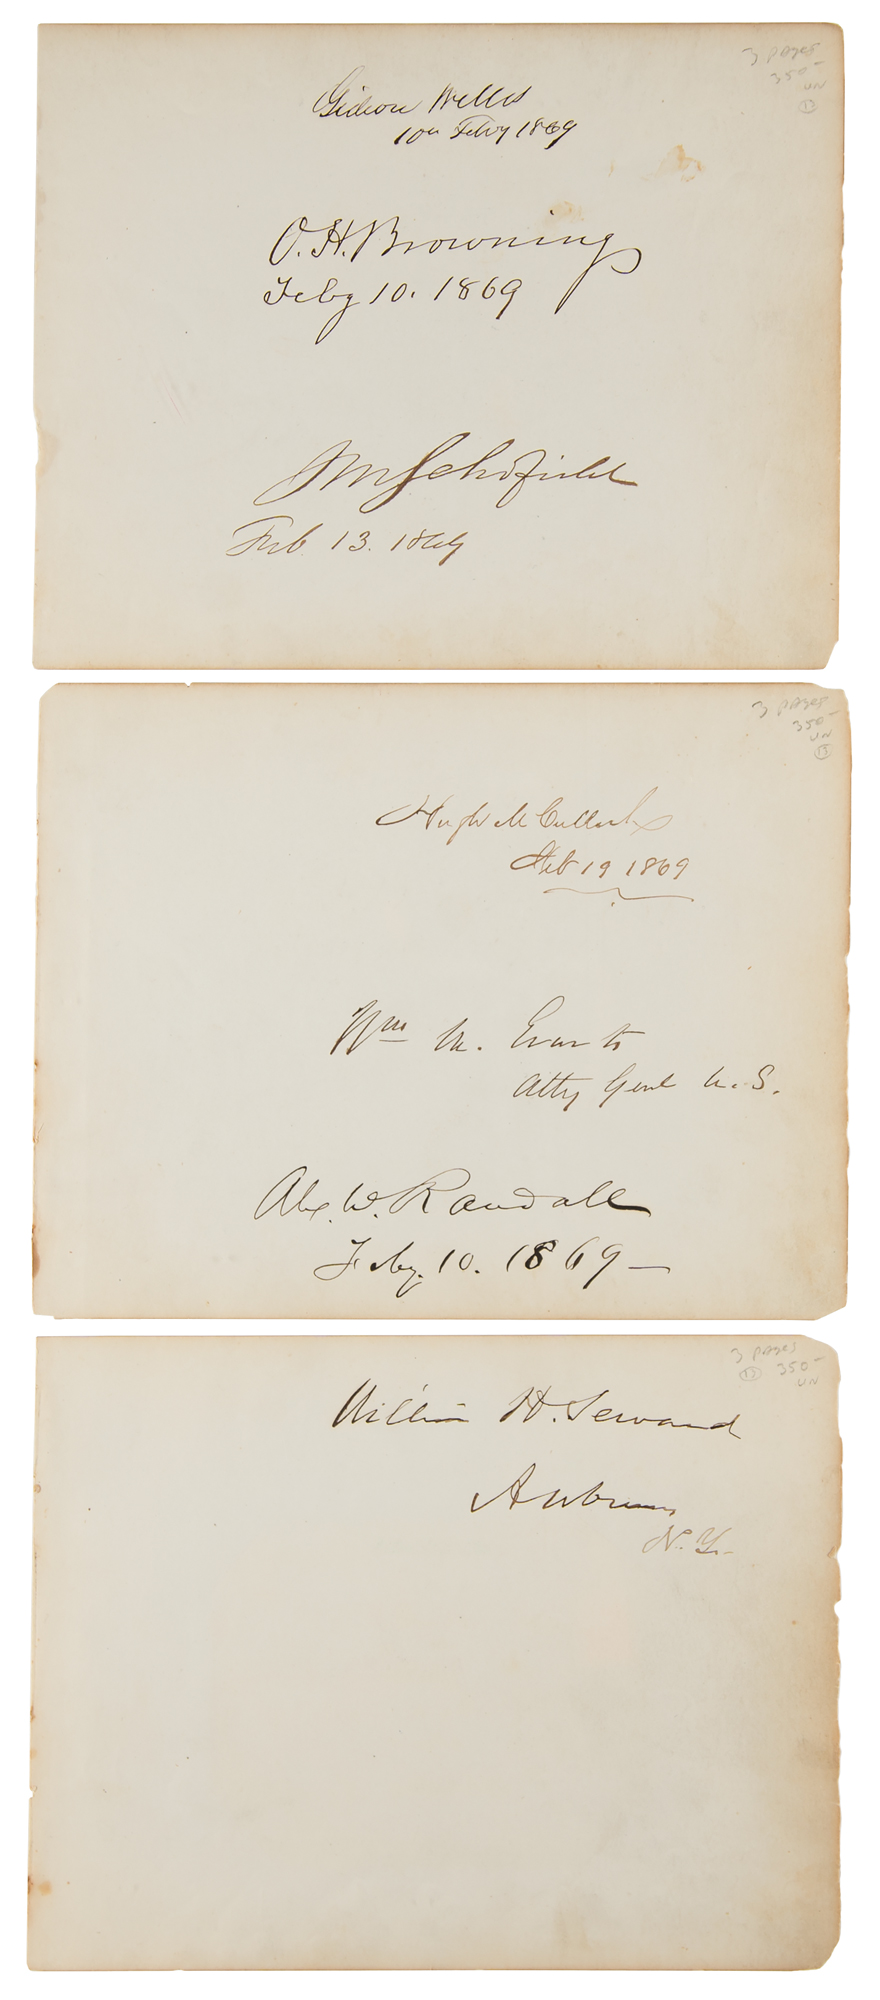 3 pages
350-
UN
13
Gideon Welles
10th Feby 1869
O. H. Browning
Feby 10. 1869
JM Schofield
Feb. 13. 1869
3 pages
350-
UN
13
Hugh McCulloch
Feb 19 1869
Wm M. Evarts
Atty Genl U.S.
Alex. W. Randall
Feby. 10. 1869—
3 pages
13 350-
UN
William H. Seward
Auburn
N.Y.